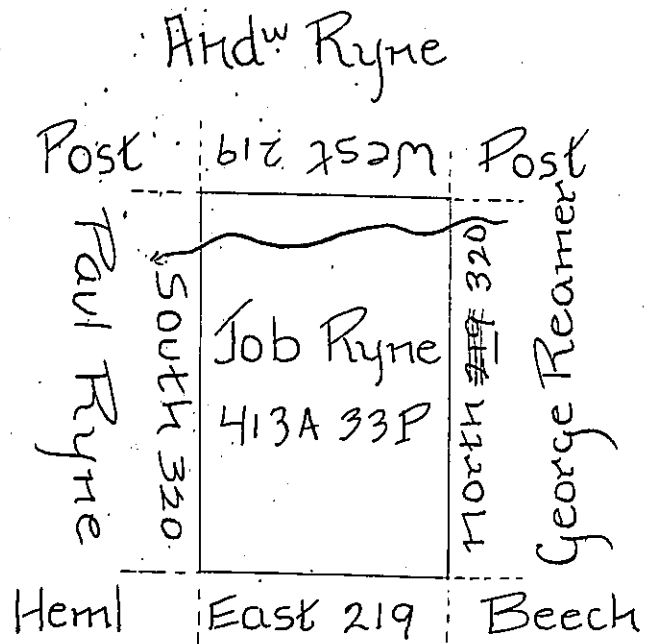 Andʷ Ryne
Post West 219 Post
Paul Ryne
South 320
Job Ryne
413A 33P
North 219 320
George Reamer
Heml East 219 Beech